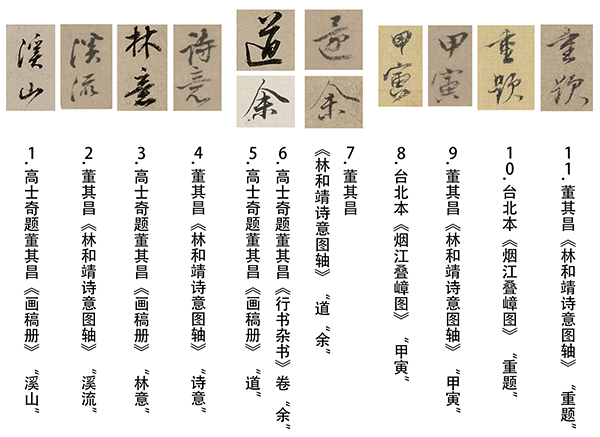 溪山
溪流
林意
詩意
道
道
余
余
甲寅
甲寅
重題
重題
1.高士奇题董其昌《画稿册》“溪山”
2.董其昌《林和靖诗意图轴》“溪流”
3.高士奇题董其昌《画稿册》“林意”
4.董其昌《林和靖诗意图轴》“诗意”
5.高士奇题董其昌《画稿册》“道”
6.高士奇题董其昌《行书杂书》卷“余”
7.董其昌
《林和靖诗意图轴》“道”“余”
8.台北本《烟江叠嶂图》“甲寅”
9.董其昌《林和靖诗意图轴》“甲寅”
10.台北本《烟江叠嶂图》“重题”
11.董其昌《林和靖诗意图轴》“重题”